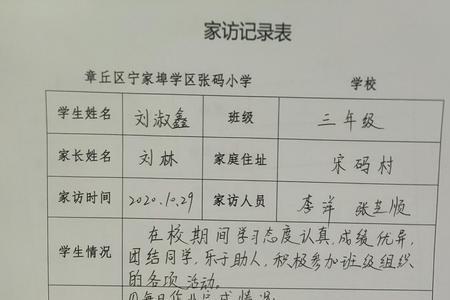 家访记录表
章丘区宁家埠学区张码小学 学校
学生姓名 刘淑鑫 班级 三年级
家长姓名 刘林 家庭住址 宋码村
家访时间 2020.10.29 家访人员 李洋 张芝顺
在校期间学习态度认真,成绩优异,
学生情况 团结同学,乐于助人,积极参加班级组织
的各项活动。
①每日作业完成情况